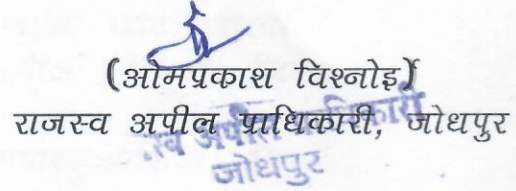 (ओमप्रकाश विश्नोई)
राजस्व अपील प्राधिकारी, जोधपुर
अपील
जोधपुर